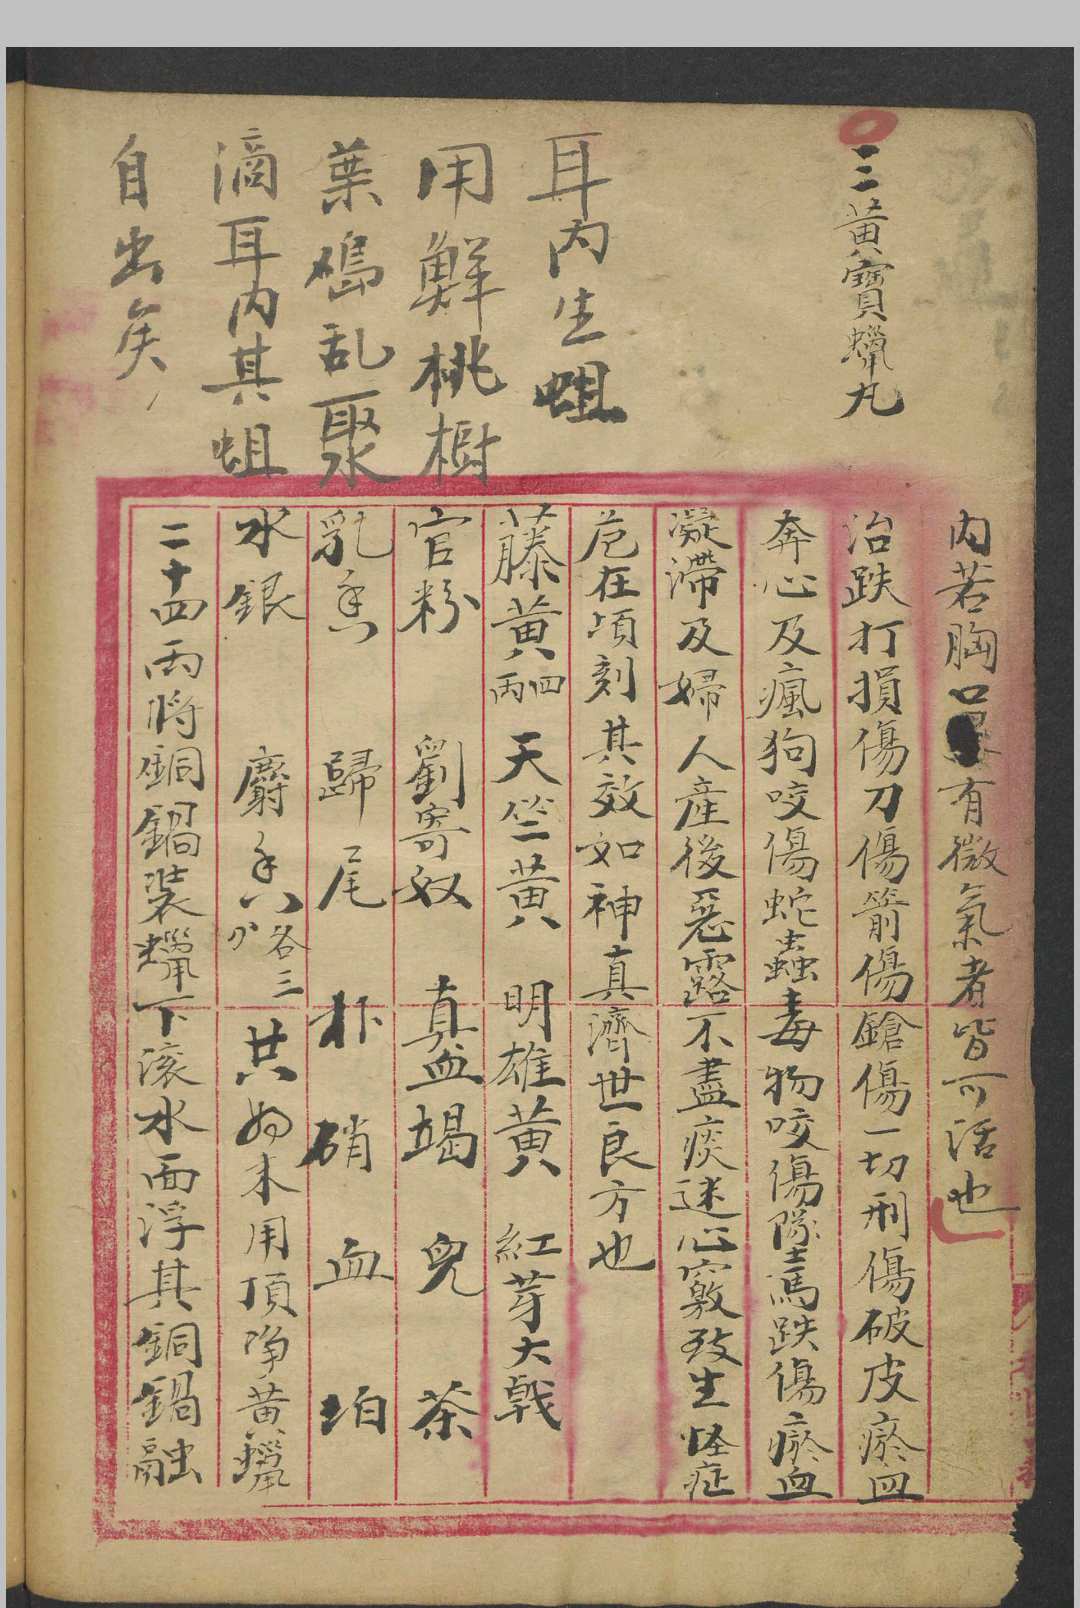 三黃寶蠟丸
耳内生蛆
用鮮桃樹
葉鳰乱聚
滴耳内其蛆
自出矣
内若胸口有微氣者皆可活也
治跌打損傷刀傷箭傷鎗傷一切刑傷破皮瘀血
奔心及瘋狗咬傷蛇蟲毒物咬傷墜馬跌傷瘀血
凝滯及婦人産後惡露不盡痰迷心竅致生怪症
危在頃刻其效如神真濟世良方也
藤黃四兩 天竺黃 明雄黃 紅芽大戟
官粉 劉寄奴 真血竭 兒茶
乳香 歸尾 朴硝 血珀
水銀 麝香各三分 共為末用頂净黃蠟
二十四兩將銅鍋装蠟下滚水面浮其銅鍋融